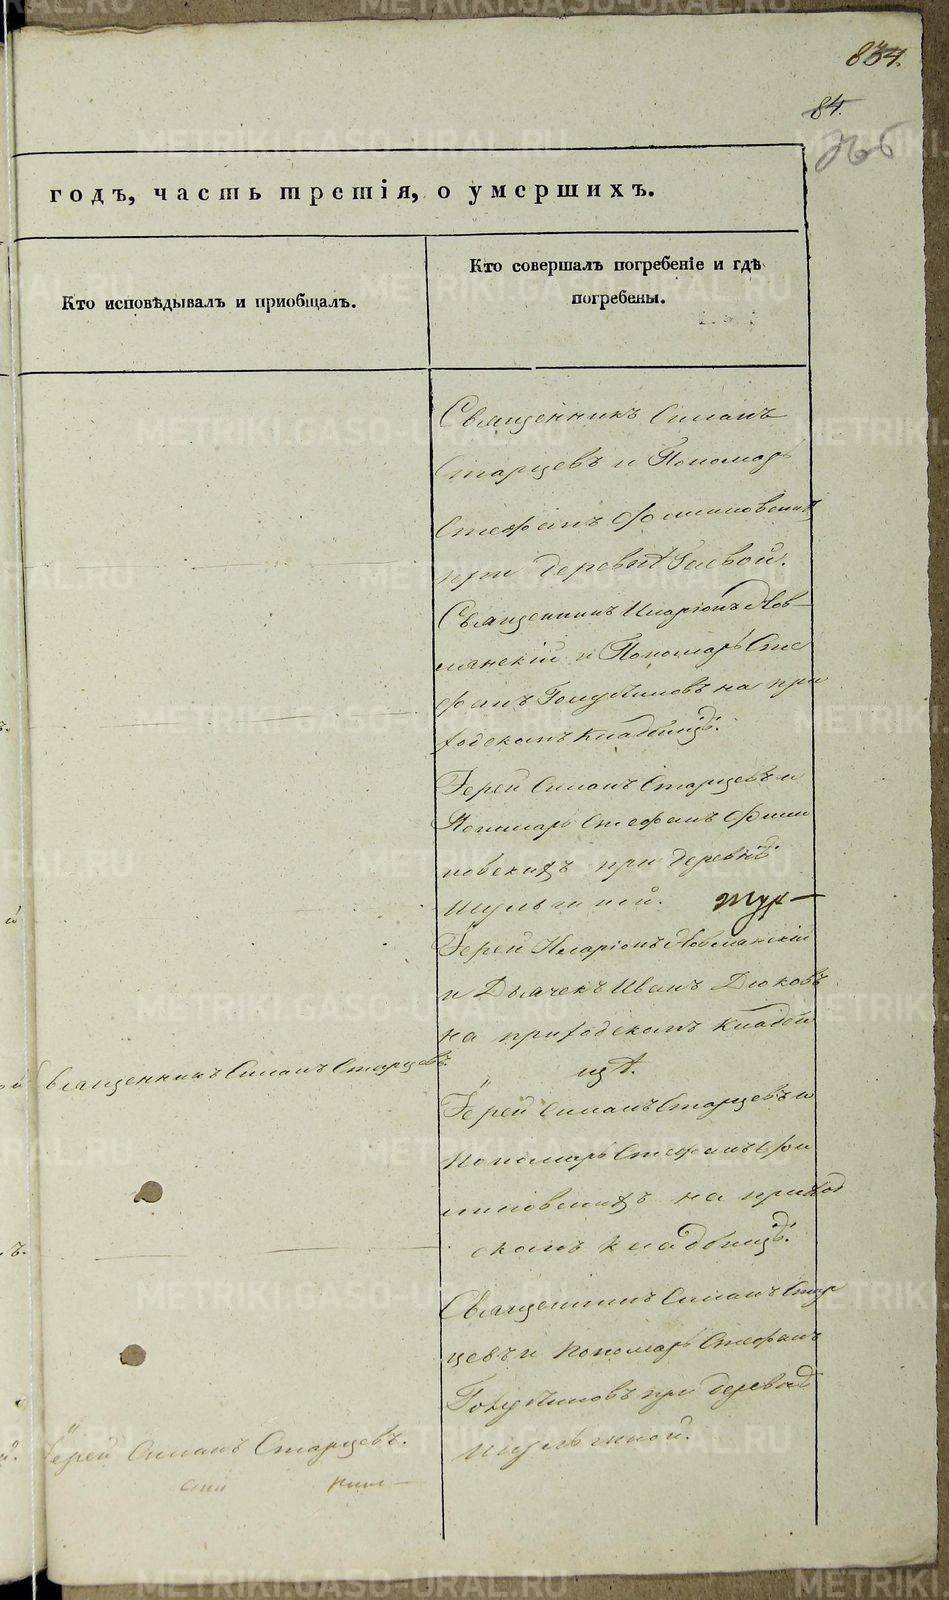 834.
84.
годъ, часть третія, о умершихъ.
Кто исповѣдывалъ и приобщалъ.
Кто совершалъ погребеніе и гдѣ
погребены.
Священникъ Симонъ
Старцевъ и Пономарь
Стефанъ
при деревнѣ
Священникъ Иларіонъ
и Пономарь Сте
фанъ Голубчиковъ на при
ходскомъ кладбищѣ.
Іерей Симонъ Старцевъ и
Пономарь Стефанъ Фили
повскихъ при деревнѣ
Шульгиной.
Іерей Иларіонъ
и Дьячекъ Иванъ Дюковъ
на приходскомъ кладби
щѣ.
Священникъ Симонъ Старцевъ.
Іерей Симонъ Старцевъ и
Пономарь Стефанъ Фи
липовскихъ на приход
скомъ кладбищѣ.
Священникъ Симонъ Стар
цевъ и Пономарь Стефанъ
Голубчиковъ при деревнѣ
Шульгиной.
Іерей Симонъ Старцевъ.
METRIKI.GASO-URAL.RU